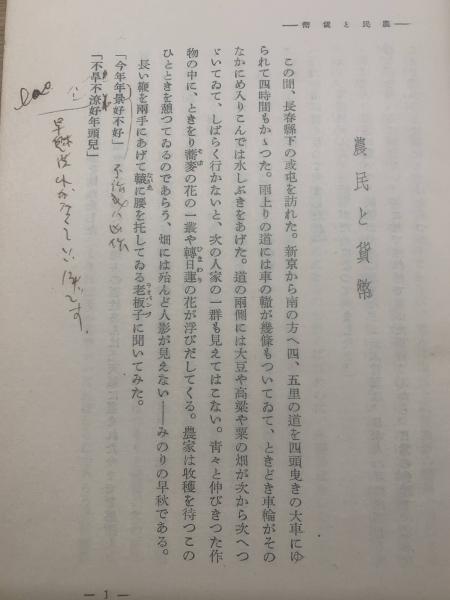 農民と貨幣
農民と貨幣
この間、長春縣下の或屯を訪れた。新京から南の方へ四、五里の道を四頭曳きの大車にゆ
られて四時間もかゝつた。雨上りの道には車の轍が幾條もついてゐて、ときどき車輪がその
なかにめ入りこんでは水しぶきをあげた。道の兩側には大豆や高粱や粟の畑が次から次へつ
ゞいてゐて、しばらく行かないと、次の人家の一群も見えてはこない。靑々と伸びきつた作
物の中に、ときをり蕎麥の花の一叢や轉日蓮の花が浮びだしてくる。農家は收穫を待つこの
ひとときを憩つてゐるのであらう、畑には殆んど人影が見えない――みのりの早秋である。
長い鞭を兩手にあげて轅に腰を托してゐる老板子に聞いてみた。
「今年年景好不好」
「不旱不潦好年頭兒」
そば
ひまわり
ながえ
ラオバンヅ
lao
— 1 —